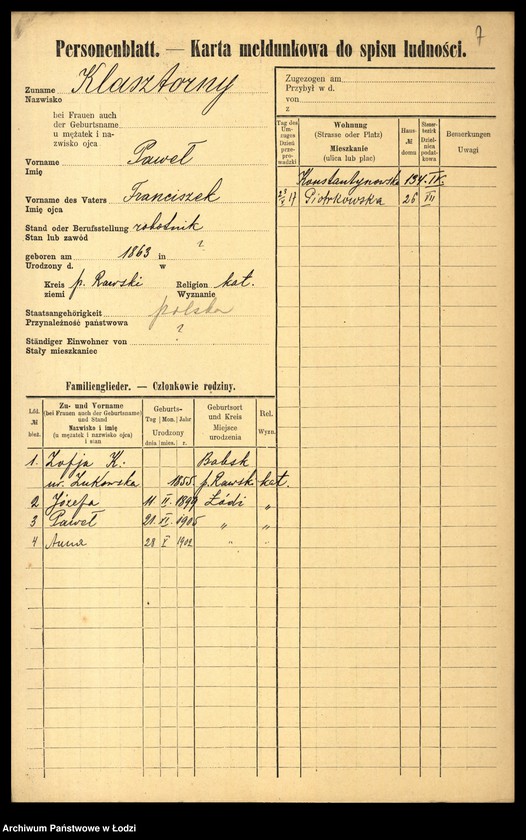 7
Personenblatt. — Karta meldunkowa do spisu ludności.
Zuname Klasztorny
Nazwisko
bei Frauen auch
der Geburtsname
u mężatek i na-
zwisko ojca
Vorname Paweł
Imię
Vorname des Vaters Franciszek
Imię ojca
Stand oder Berufsstellung robotnik
Stan lub zawód
geboren am 1863 in ?
Urodzony d. w
Kreis p. Rawski Religion kat.
ziemi Wyznanie
Staatsangehörigkeit polska
Przynależność państwowa
?
Ständiger Einwohner von
Stały mieszkaniec
Zugezogen am
Przybył w d.
von
z
Tag des Um-zuges Dzień prze-prowadzki
Wohnung
(Strasse oder Platz)
Mieszkanie
(ulica lub plac)
Haus-
№
domu
Steuer-bezirk Dziel-nica podat-kowa
Bemerkungen
Uwagi
Konstantynowska 134 IX.
23/3 17 Piotrkowska 26 VII
Familienglieder. — Członkowie rędziny.
Lfd.
№
bież.
Zu- und Vorname
(bei Frauen auch der Geburtsname)
und Stand
Nazwisko i imię
(u mężatek i nazwisko ojca)
i stan
Geburts-
Tag Mon. Jahr
Urodzony
dnia mies. r.
Geburtsort
und Kreis
Miejsce
urodzenia
Rel.
Wyzn.
1. Zofja K. Babsk
ur. Żukowska 1855. p. Rawsk. kat.
2 Józefa 11 II. 1899 Łódź „
3 Paweł 21. XI. 1905 „ „
4 Anna 28 V 1902 „ „
Archiwum Państwowe w Łodzi